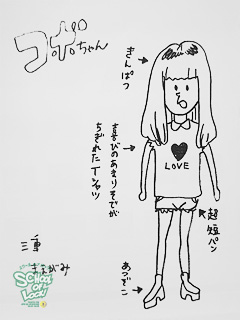 コボちゃん
きんぱつ
喜びのあまりそでが
ちぎれたTシャツ
LOVE
超短パン
あつぞこ
三重
SCHOOL
OF
LOCK!